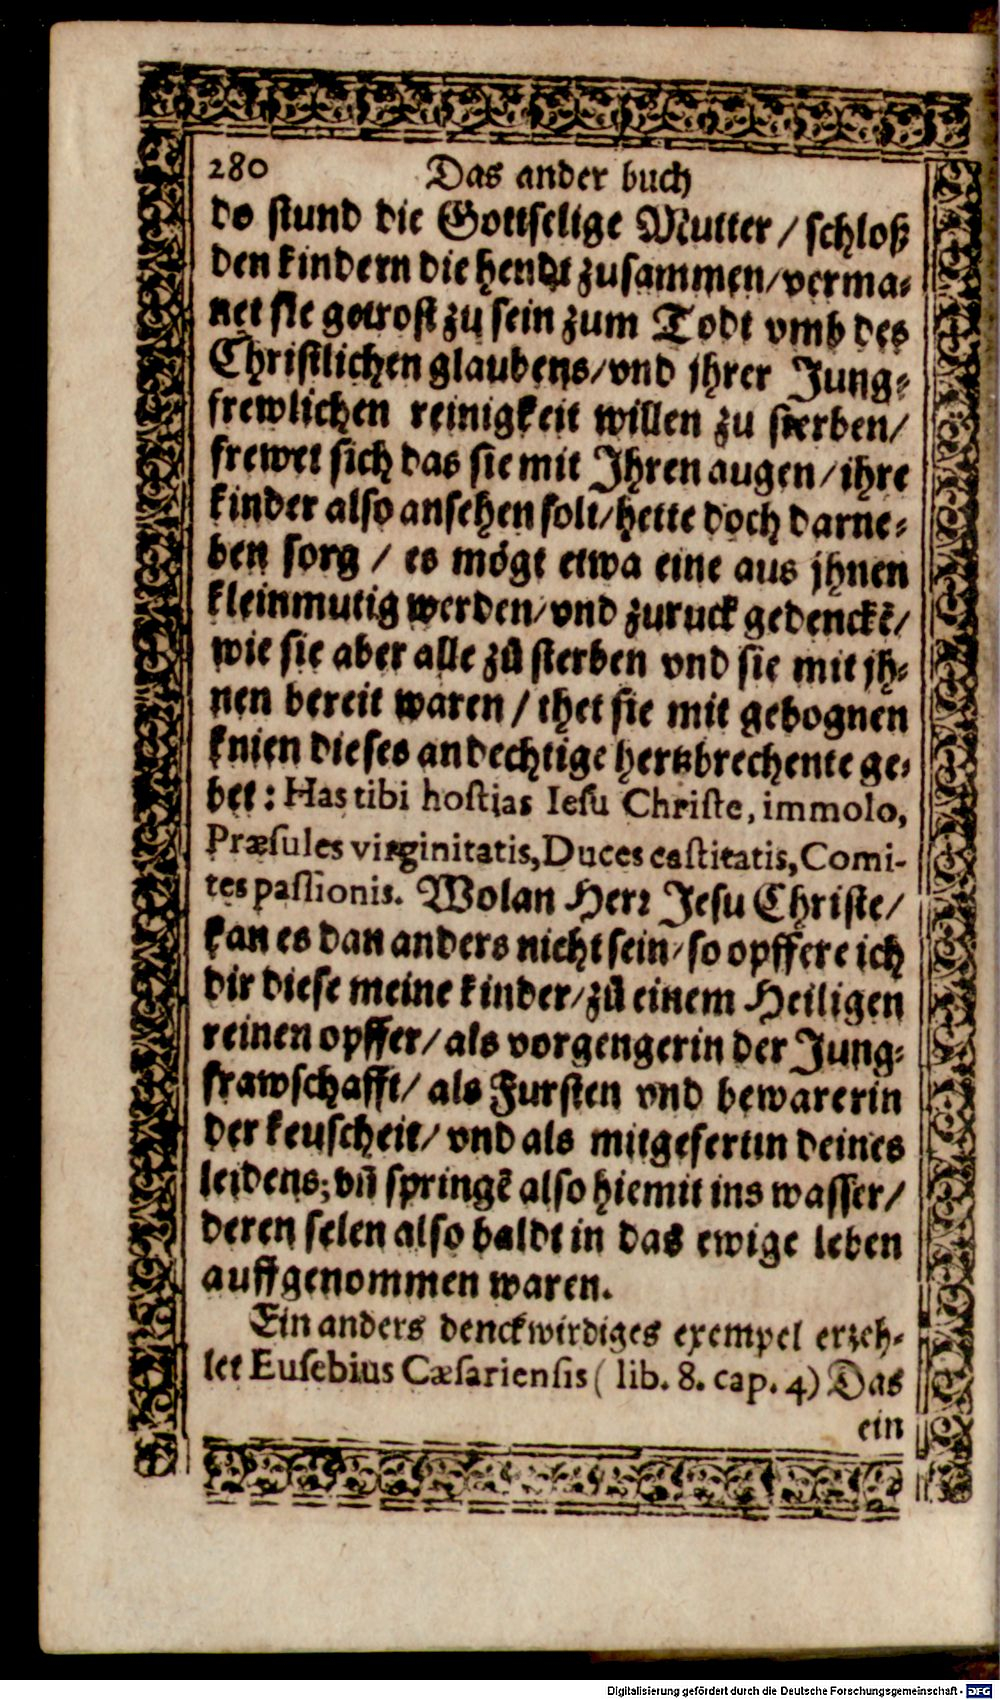 280 Das ander buch
do stund die Gottselige Mutter / schloß
den kindern die hendt zusammen / verma⸗
net sie getrost zu sein zum Todt vmb des
Christlichen glaubens / vnd jhrer Jung⸗
frewlichen reinigkeit willen zu sterben /
frewet sich das sie mit Jhren augen / ihre
kinder also ansehen solt / hette doch darne⸗
ben sorg / es mögt etwa eine aus jhnen
kleinmutig werden / vnd zuruck gedenckẽ /
wie sie aber alle zů sterben vnd sie mit jh⸗
nen bereit waren / thet sie mit gebognen
knien dieses andechtige hertzbrechente ge⸗
bet : Has tibi hostias Iesu Christe, immolo,
Præsules virginitatis, Duces castitatis, Comi-
tes passionis. Wolan Herꝛ Jesu Christe /
kan es dan anders nicht sein / so opffere ich
dir diese meine kinder / zů einem Heiligen
reinen opffer / als vorgengerin der Jung⸗
frawschafft / als Fursten vnd bewarerin
der keuscheit / vnd als mitgefertin deines
leidens; vñ springẽ also hiemit ins wasser /
deren selen also baldt in das ewige leben
auffgenommen waren.
Ein anders denckwirdiges exempel erzeh⸗
let Eusebius Cæsariensis ( lib. 8. cap. 4) Das
ein
Digitalisierung gefördert durch die Deutsche Forschungsgemeinschaft - DFG